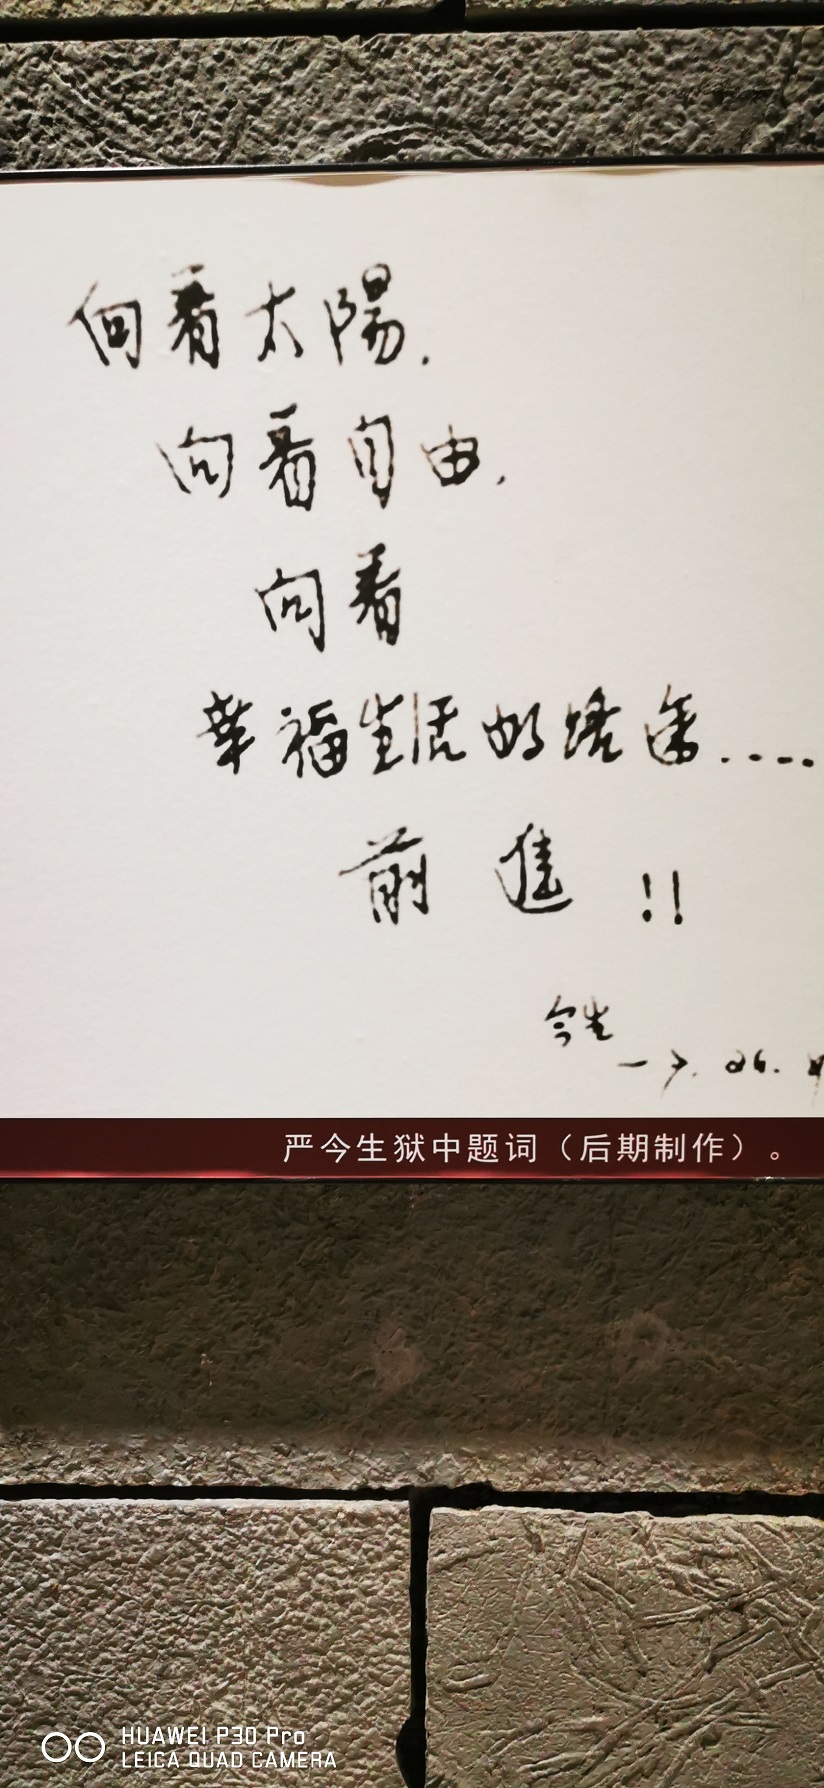 向着太陽.
向着自由.
向着
幸福生活的路途....
前進!!
今生
严今生狱中题词（后期制作）。
HUAWEI P30 Pro
LEICA QUAD CAMERA